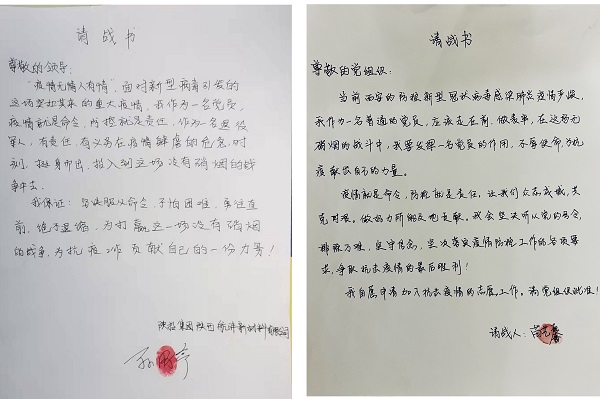 请战书
尊敬的领导:
"疫情无情人有情",面对新型病毒引发的
这场突如其来的重大疫情,我作为一名党员,
疫情就是命令,防控就是责任,作为一名退役
军人,有责任,有义务在疫情肆虐的危急时
刻,挺身而出,投入到这场没有硝烟的战
争中去。
我保证:坚决服从命令,不怕困难,勇往直
前,绝不退缩,为打赢这一场没有硝烟
的战争,为抗疫工作贡献自己的一份力量!
陕投集团陕西新材料有限公司
请战书
尊敬的党组织:
当前西安的防控新型冠状病毒感染肺炎疫情严峻,
我作为一名普通的党员,应该走在前,做表率,在这场无
硝烟的战斗中,我要发挥一名党员的作用,不辱使命,为抗
疫献出自己的力量。
疫情就是命令,防控就是责任,让我们众志成城,共
克时艰,做好力所能及地贡献。我会坚决听从党的号令,
排除万难,坚守信念,坚决落实疫情防控工作的各项要
求,争取抗击疫情的最后胜利!
我自愿申请加入抗击疫情的志愿工作。请党组织批准!
请战人: